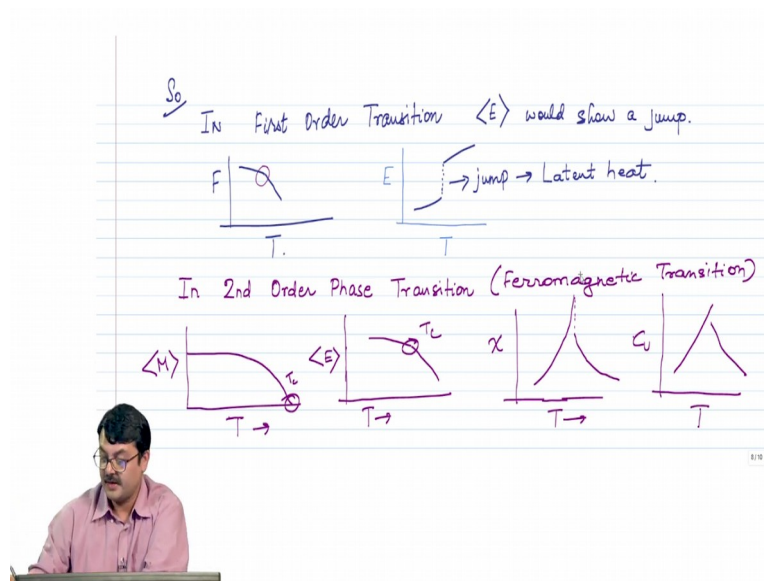 So
In First Order Transition ⟨E⟩ would show a jump.
F
T.
E → jump → Latent heat.
T
In 2nd Order Phase Transition (Ferromagnetic Transition)
⟨M⟩ Tc
T →
⟨E⟩ Tc
T→
χ
T→
Cv
T
8/10